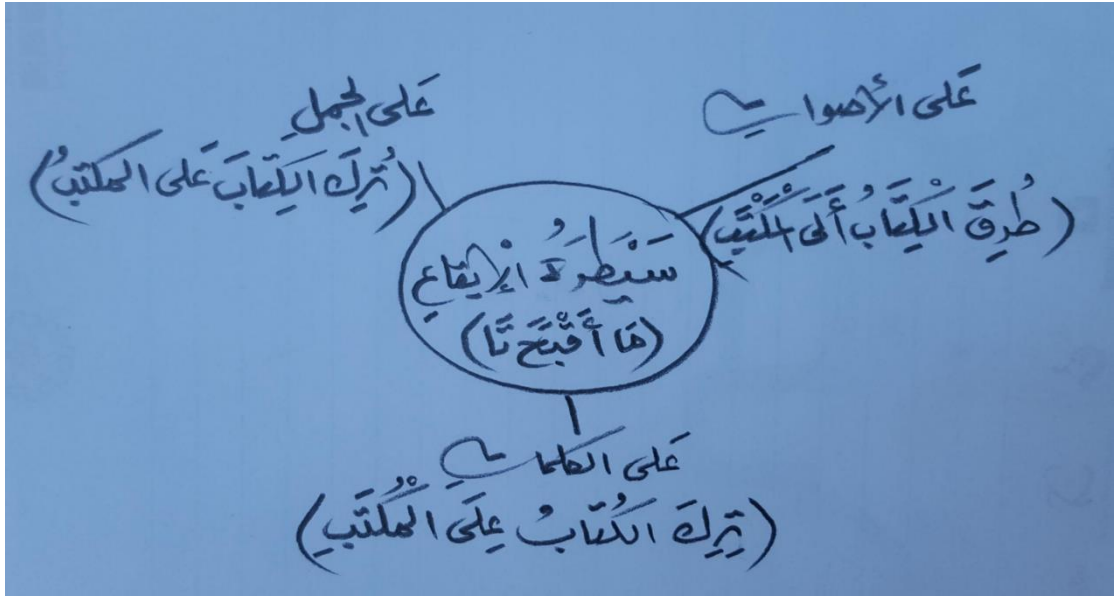 عَلى الأصوات
(طُرِقَ الْكِتَابُ أَلَى الْمَكْتَبِ)
عَلى الجملِ
(تُرِكَ الكِتَابَ عَلى المكتبُ)
سَيْطَرَةُ الْإيقاعِ
(مَا أَقْبَحَ تَا)
عَلى الكلماتِ
(تِرِكَ الكُتَابُ عِلَى الْمُكْتَبِ)